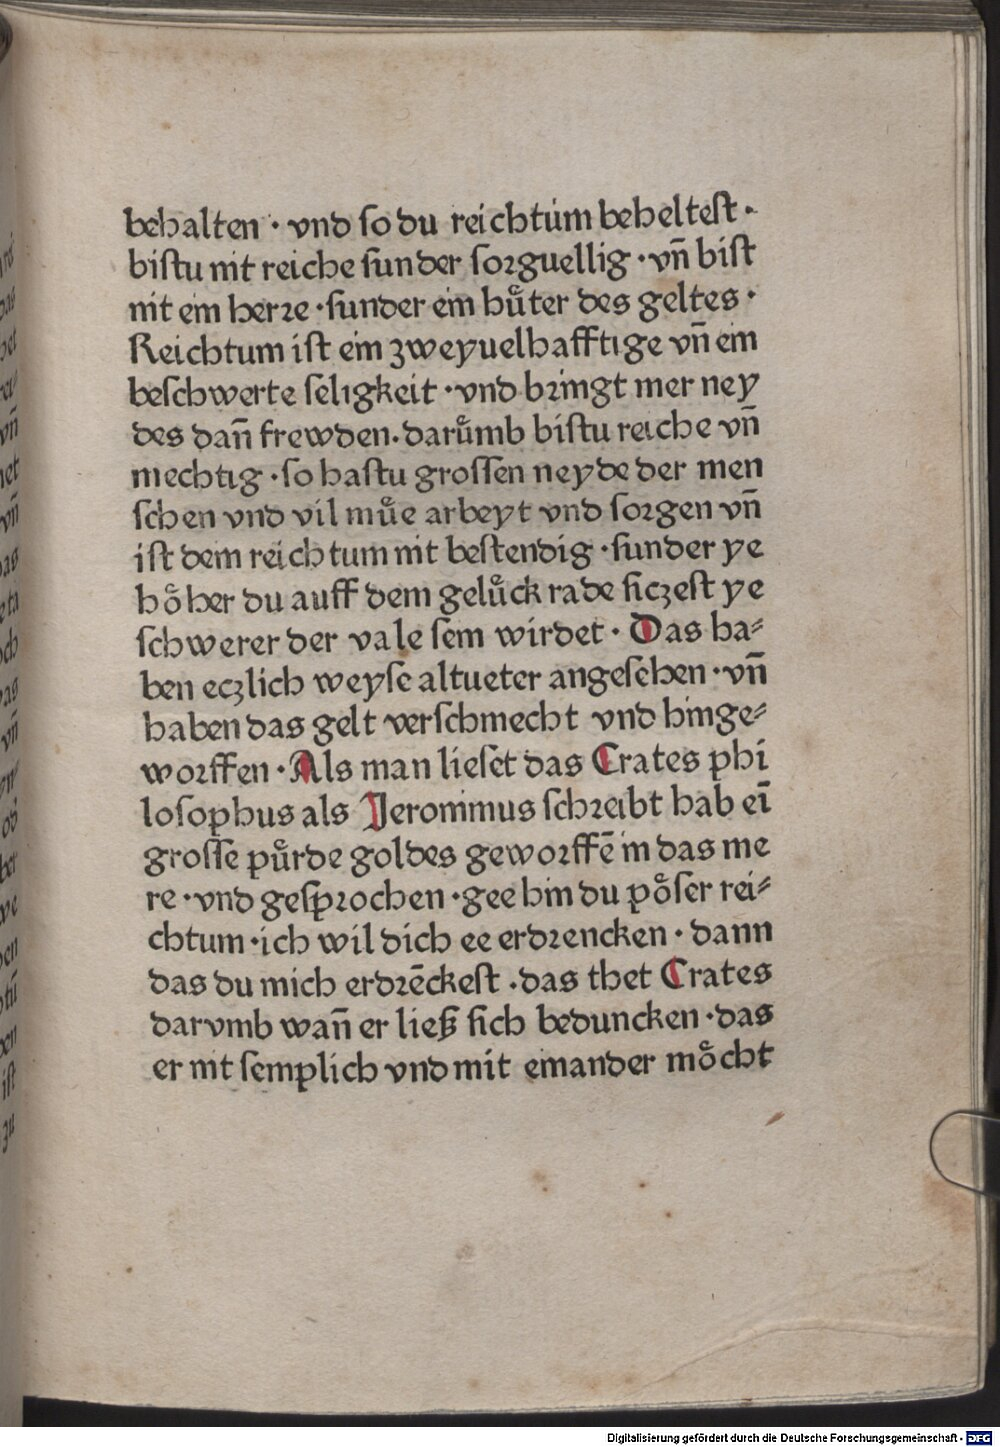 behalten · vnd so du reichtum beheltest ·
bistu nit reiche sunder sorguellig · vn̄ bist
nit ein herre · sunder ein huͤter des geltes ·
Reichtum ist ein zweyuelhafftige vn̄ ein
beschwerte seligkeit · vnd bringt mer ney
des dan̄ frewden · daruͤmb bistu reiche vn̄
mechtig · so hastu grossen neyde der men
schen vnd vil muͤe arbeyt vnd sorgen vn̄
ist dem reichtum nit bestendig · sunder ye
hoͤher du auff dem geluͤck rade siczest ye
schwerer der vale sein wirdet · Das ha⸗
ben eczlich weyse altueter angesehen · vn̄
haben das gelt verschmecht vnd hinge⸗
worffen · Als man lieset das Crates phi
losophus als Jeronimus schreibt hab eī
grosse puͤrde goldes geworffē in das me
re · vnd gesprochen · gee hin du poͤser rei⸗
chtum · ich wil dich ee erdrencken · dann
das du mich erdrēckest · das thet Crates
darvmb wan̄ er ließ sich beduncken · das
er nit semplich vnd mit einander moͤcht
Digitalisierung gefördert durch die Deutsche Forschungsgemeinschaft - DFG